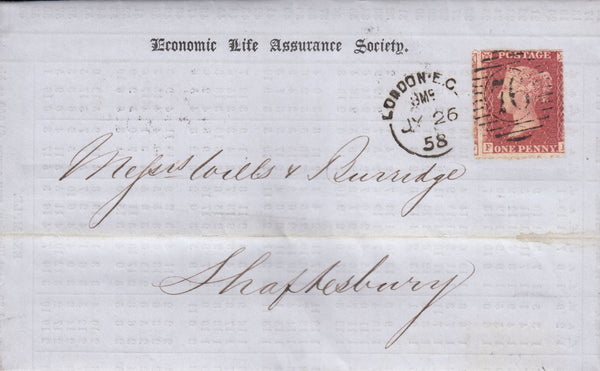 Economic Life Assurance Society.
LONDON·E.C.
JY 26
58
76
POSTAGE
ONE PENNY
Messrs Wills & Burridge
Shaftesbury